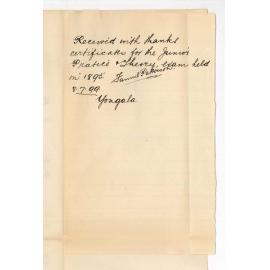 Received with thanks
certificate for the Junior
Pratice & Theory, exam held
in 1895 Samuel
8.7.99
Yongala